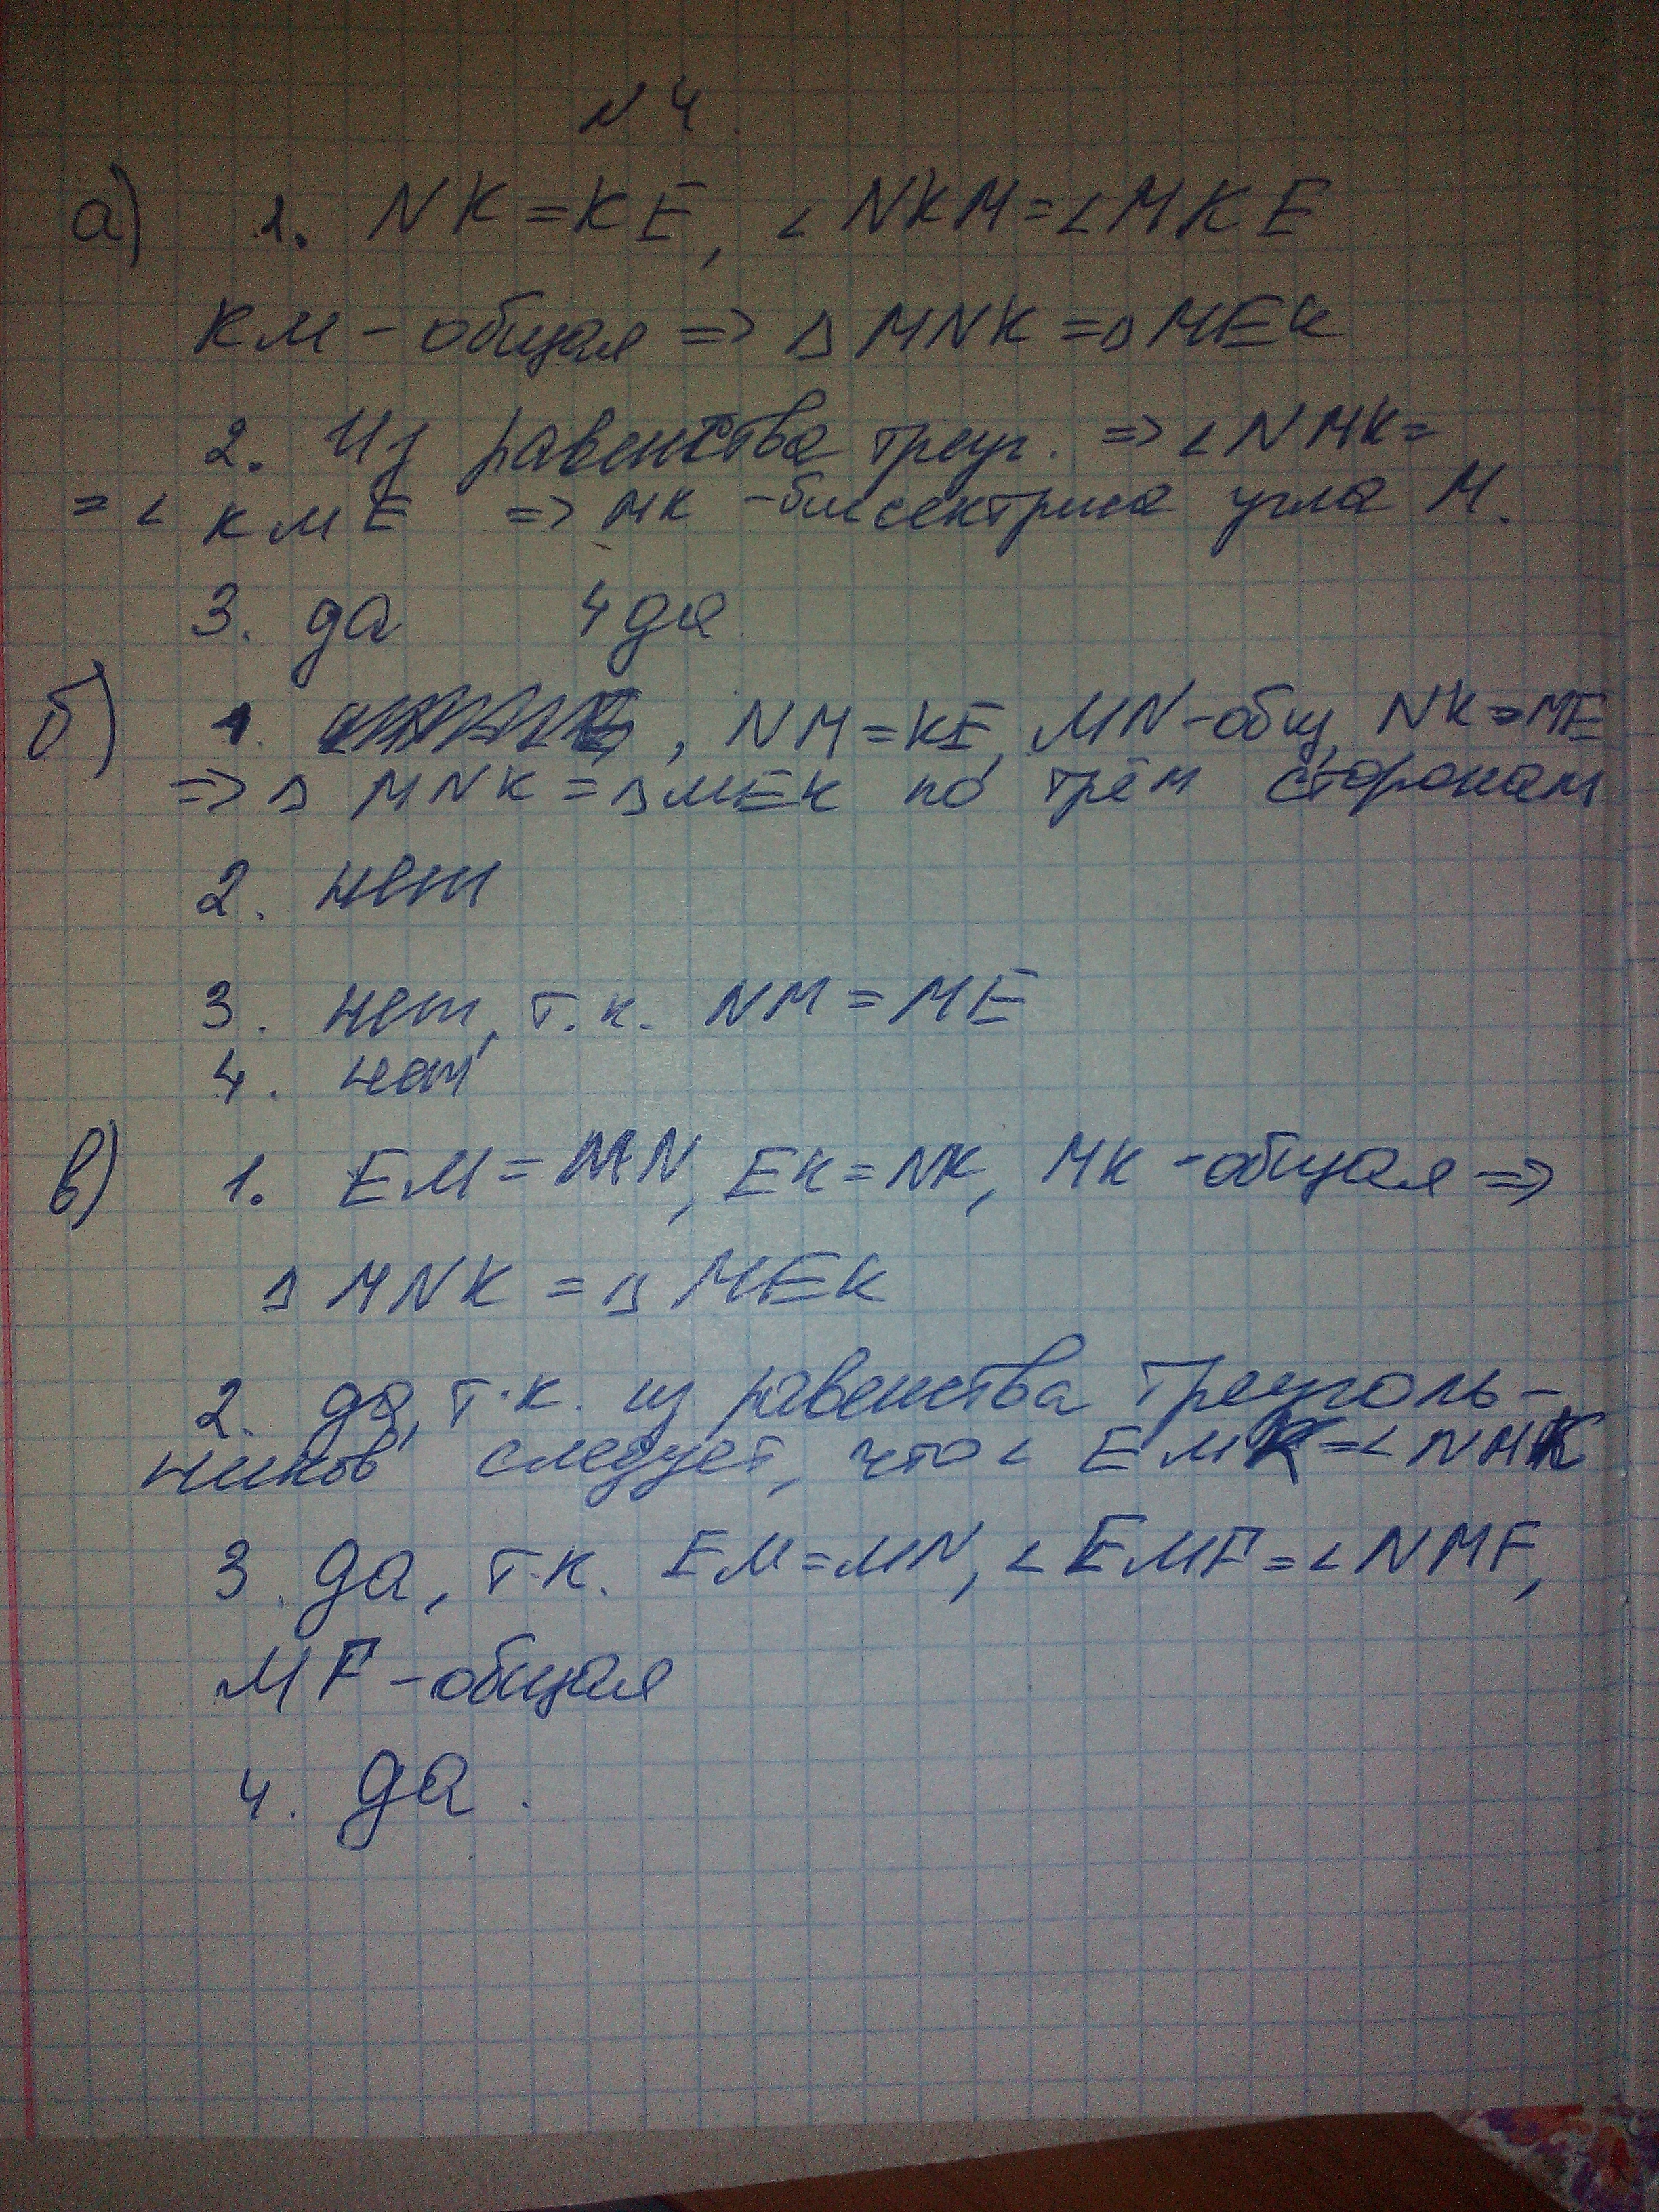 N 4.
а) 1. NK = KE, ∠NKM = ∠MKE
KM - общая => Δ MNK = Δ MEK
2. Из равенства треуг. => ∠NMK =
= ∠ KME => MK - биссектриса угла M.
3. да 4 да
б) 1. , NM = KE, MN - общ, NK = ME
=> Δ MNK = Δ MEK по трём сторонам
2. нет
3. нет, т.к. NM = ME
4. нет
в) 1. EM = MN, EK = NK, MK - общая =>
Δ MNK = Δ MEK
2. да, т.к. из равенства треуголь-
ников следует, что ∠ EMK = ∠ NMK
3. да, т.к. EM = MN, ∠EMF = ∠NMF,
MF - общая
4. да.